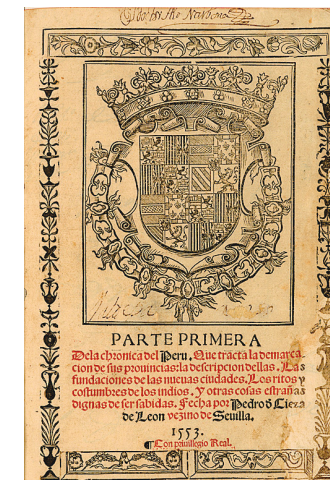 PARTE PRIMERA
Dela chronica del Peru. Que tracta la demarca
cion de sus prouincias: la descripcion dellas. Las
fundaciones de las nueuas ciudades. Los ritos y
costumbres de los indios. Y otras cosas estrañas
dignas de ser sabidas. Fecha por Pedro d̓ Cieça
de Leon vezino de Seuilla.
1553.
¶Con priuillegio Real.